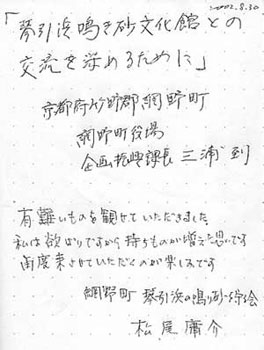 2002.8.30
「琴引浜鳴き砂文化館との
交流を深めるために」
京都府竹野郡網野町
網野町役場
企画振興課長 三浦 到
有難いものを観せていただきました
私は欲ばりですから持ちものが増え思いです
再度来させていただくのが楽しみです
網野町 琴引浜の鳴り砂を守る会
松尾庸介